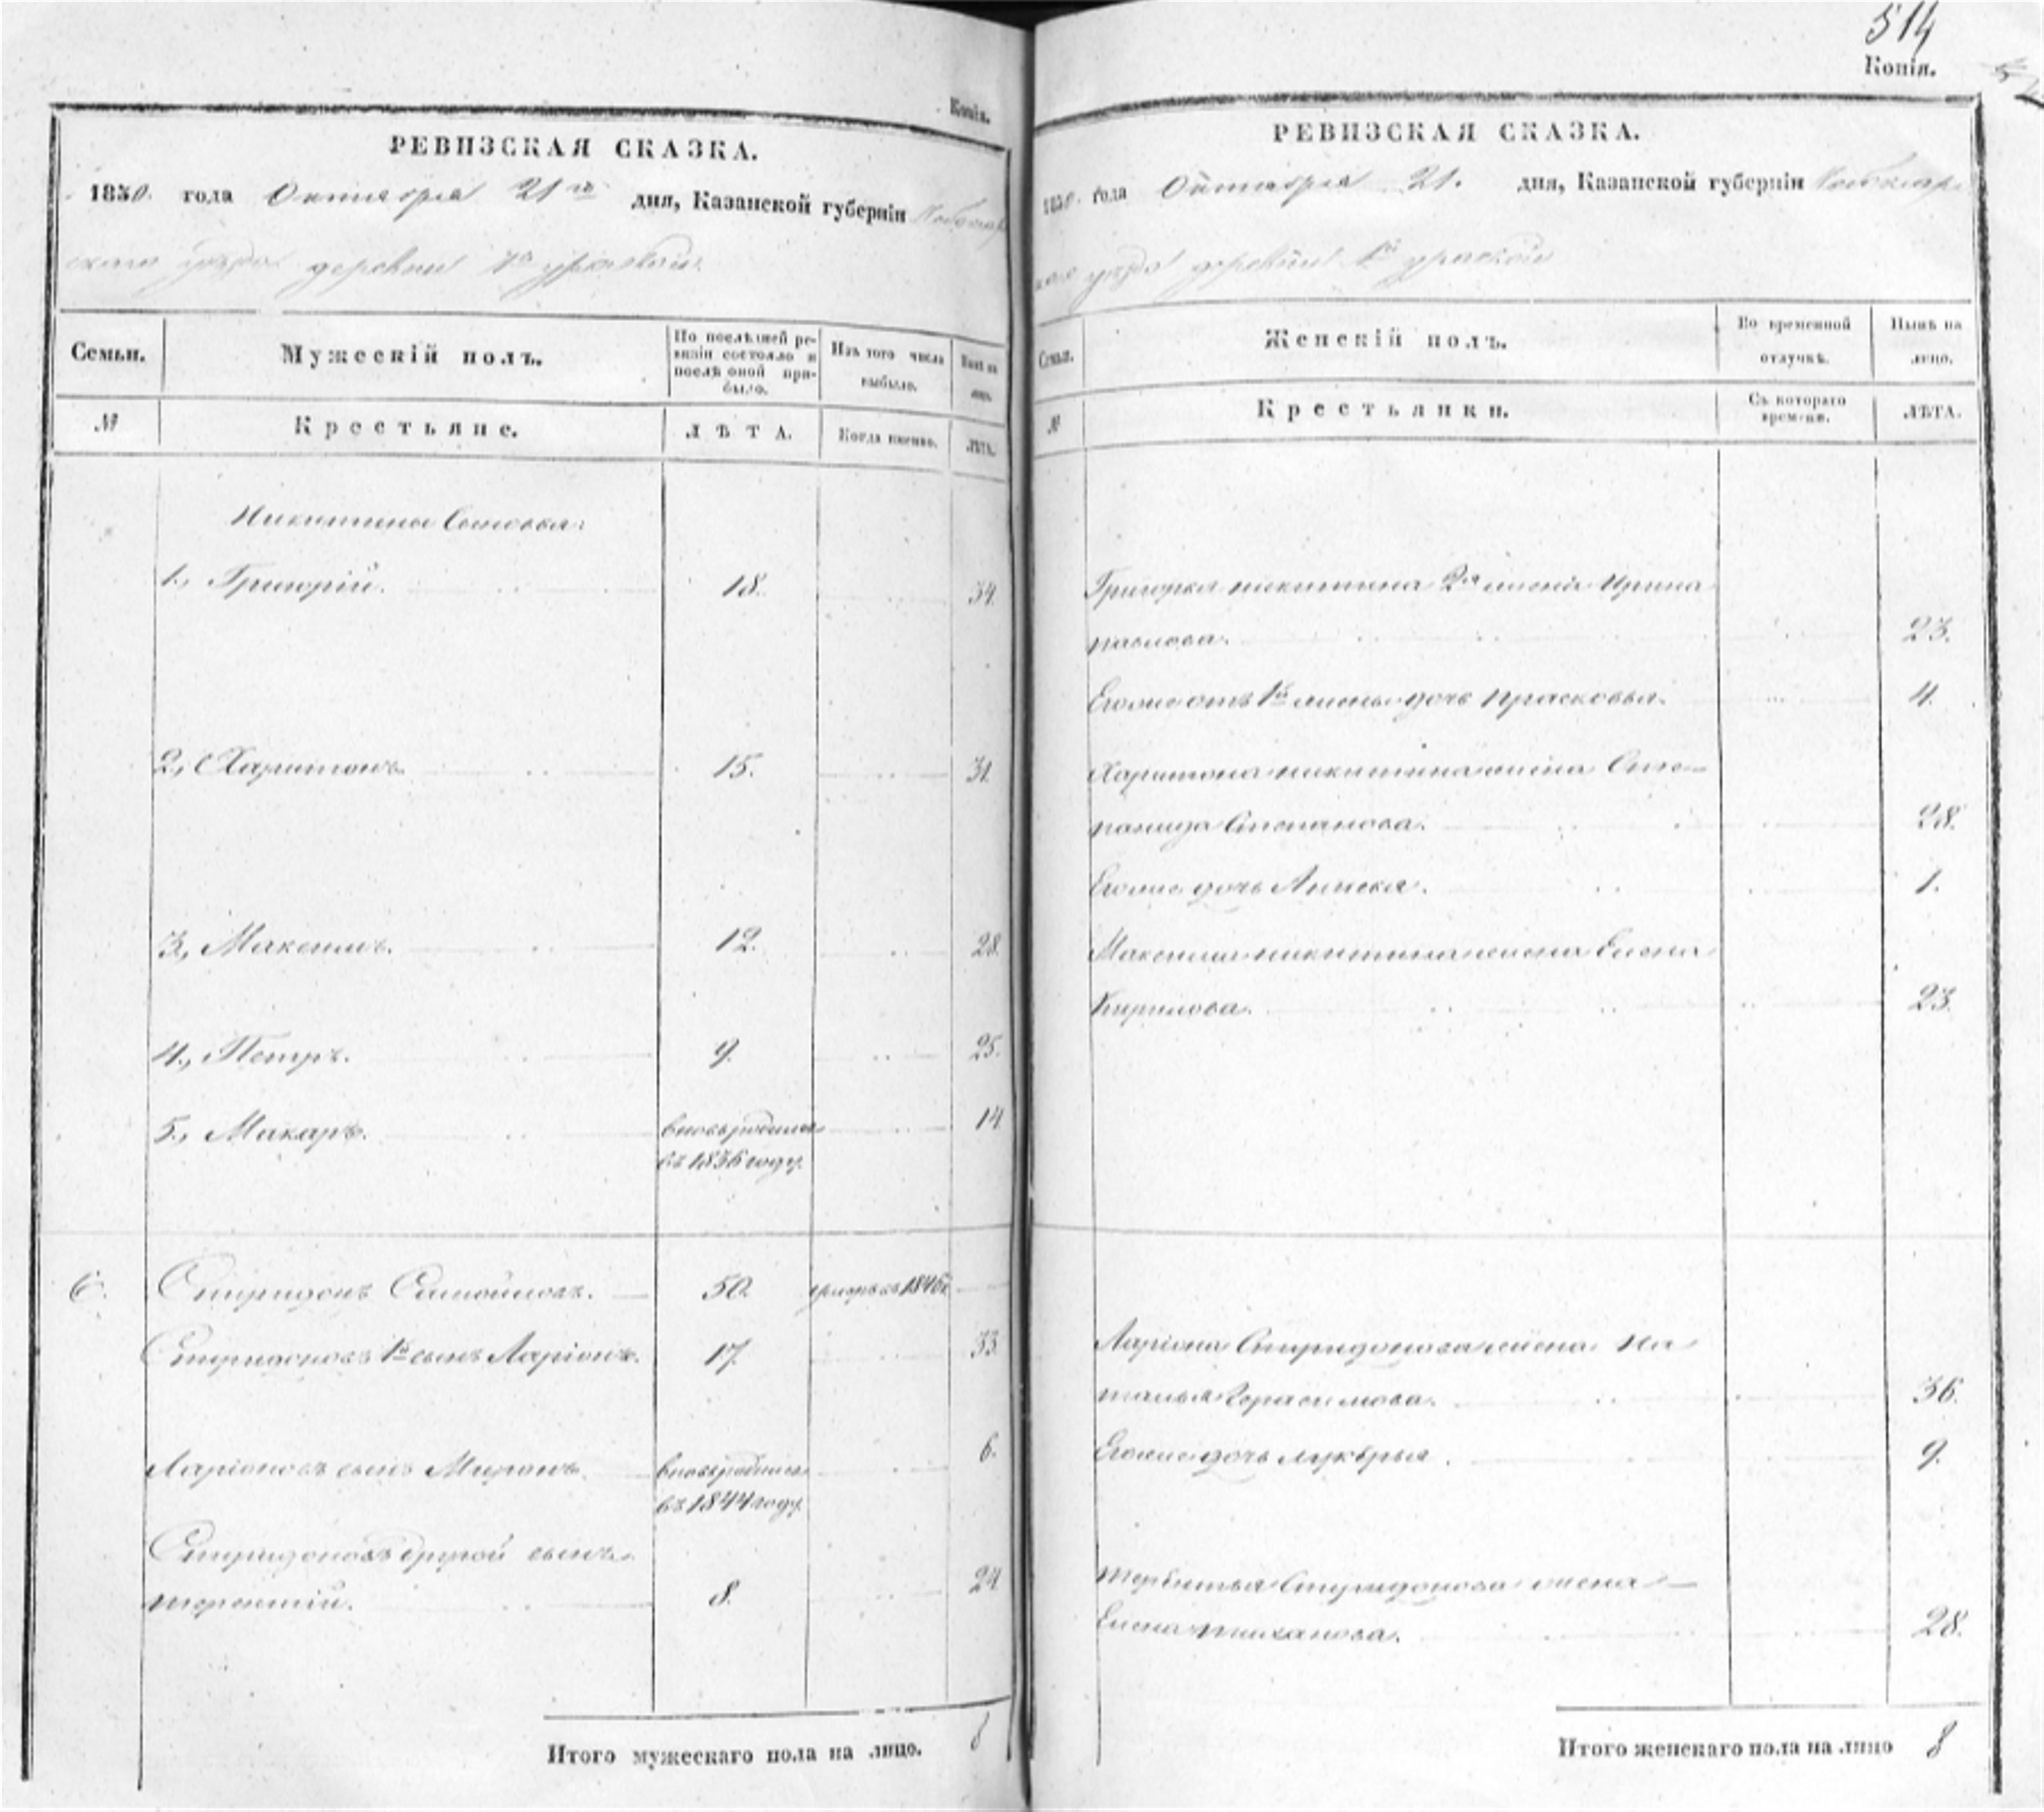 Копія.
РЕВИЗСКАЯ СКАЗКА.
1850. года Октября 21го дня, Казанской губерніи
скаго уѣзда деревни
Семьи.
Мужескій полъ.
По послѣдней ре-
визіи состояло и
послѣ оной при-
было.
Изъ того числа
выбыло.
Нынѣ на
лицо.
№
Крестьяне.
ЛѢТА.
Когда именно.
ЛѢТА.
Никитины Сыновья:
1., Григорій. 18. 34.
2., Харитонъ. 15. 31.
3., Максимъ. 12. 28.
4., Петръ. 9. 25.
5., Макаръ. вновьрожденъ 14
въ 1836 году.
6. Спиридонъ Самойловъ. 50. умеръ въ 1846г.
Спиридоновъ 1й сынъ Ларіонъ. 17. 33.
Ларіоновъ сынъ Миронъ. вновьрожденъ 6.
въ 1844 году.
Спиридоновъ другой сынъ
терентій. 8. 24
Итого мужескаго пола на лицо. 8
514
Копія.
РЕВИЗСКАЯ СКАЗКА.
1850. года Октября 21. дня, Казанской губерніи
уѣзда деревни
Семьи.
Женскій полъ.
Во временной
отлучкѣ.
Нынѣ на
лицо.
№
Крестьянки.
Съ котораго
времени.
ЛѢТА.
Григорья никитина 2я жена Ирина
павлова. 23.
Егоже отъ 1й жены дочь прасковья. 4.
Харитона никитина жена Сте-
панида Степанова. 28.
Егоже дочь Аниска. 1.
Максима никитина жена Елена
Кирилова. 23.
Ларіона Спиридонова жена На
талья Герасимова. 36.
Егоже дочь лукѣрья. 9.
терентья Спиридонова жена
Елена тиханова. 28.
Итого женскаго пола на лицо 8